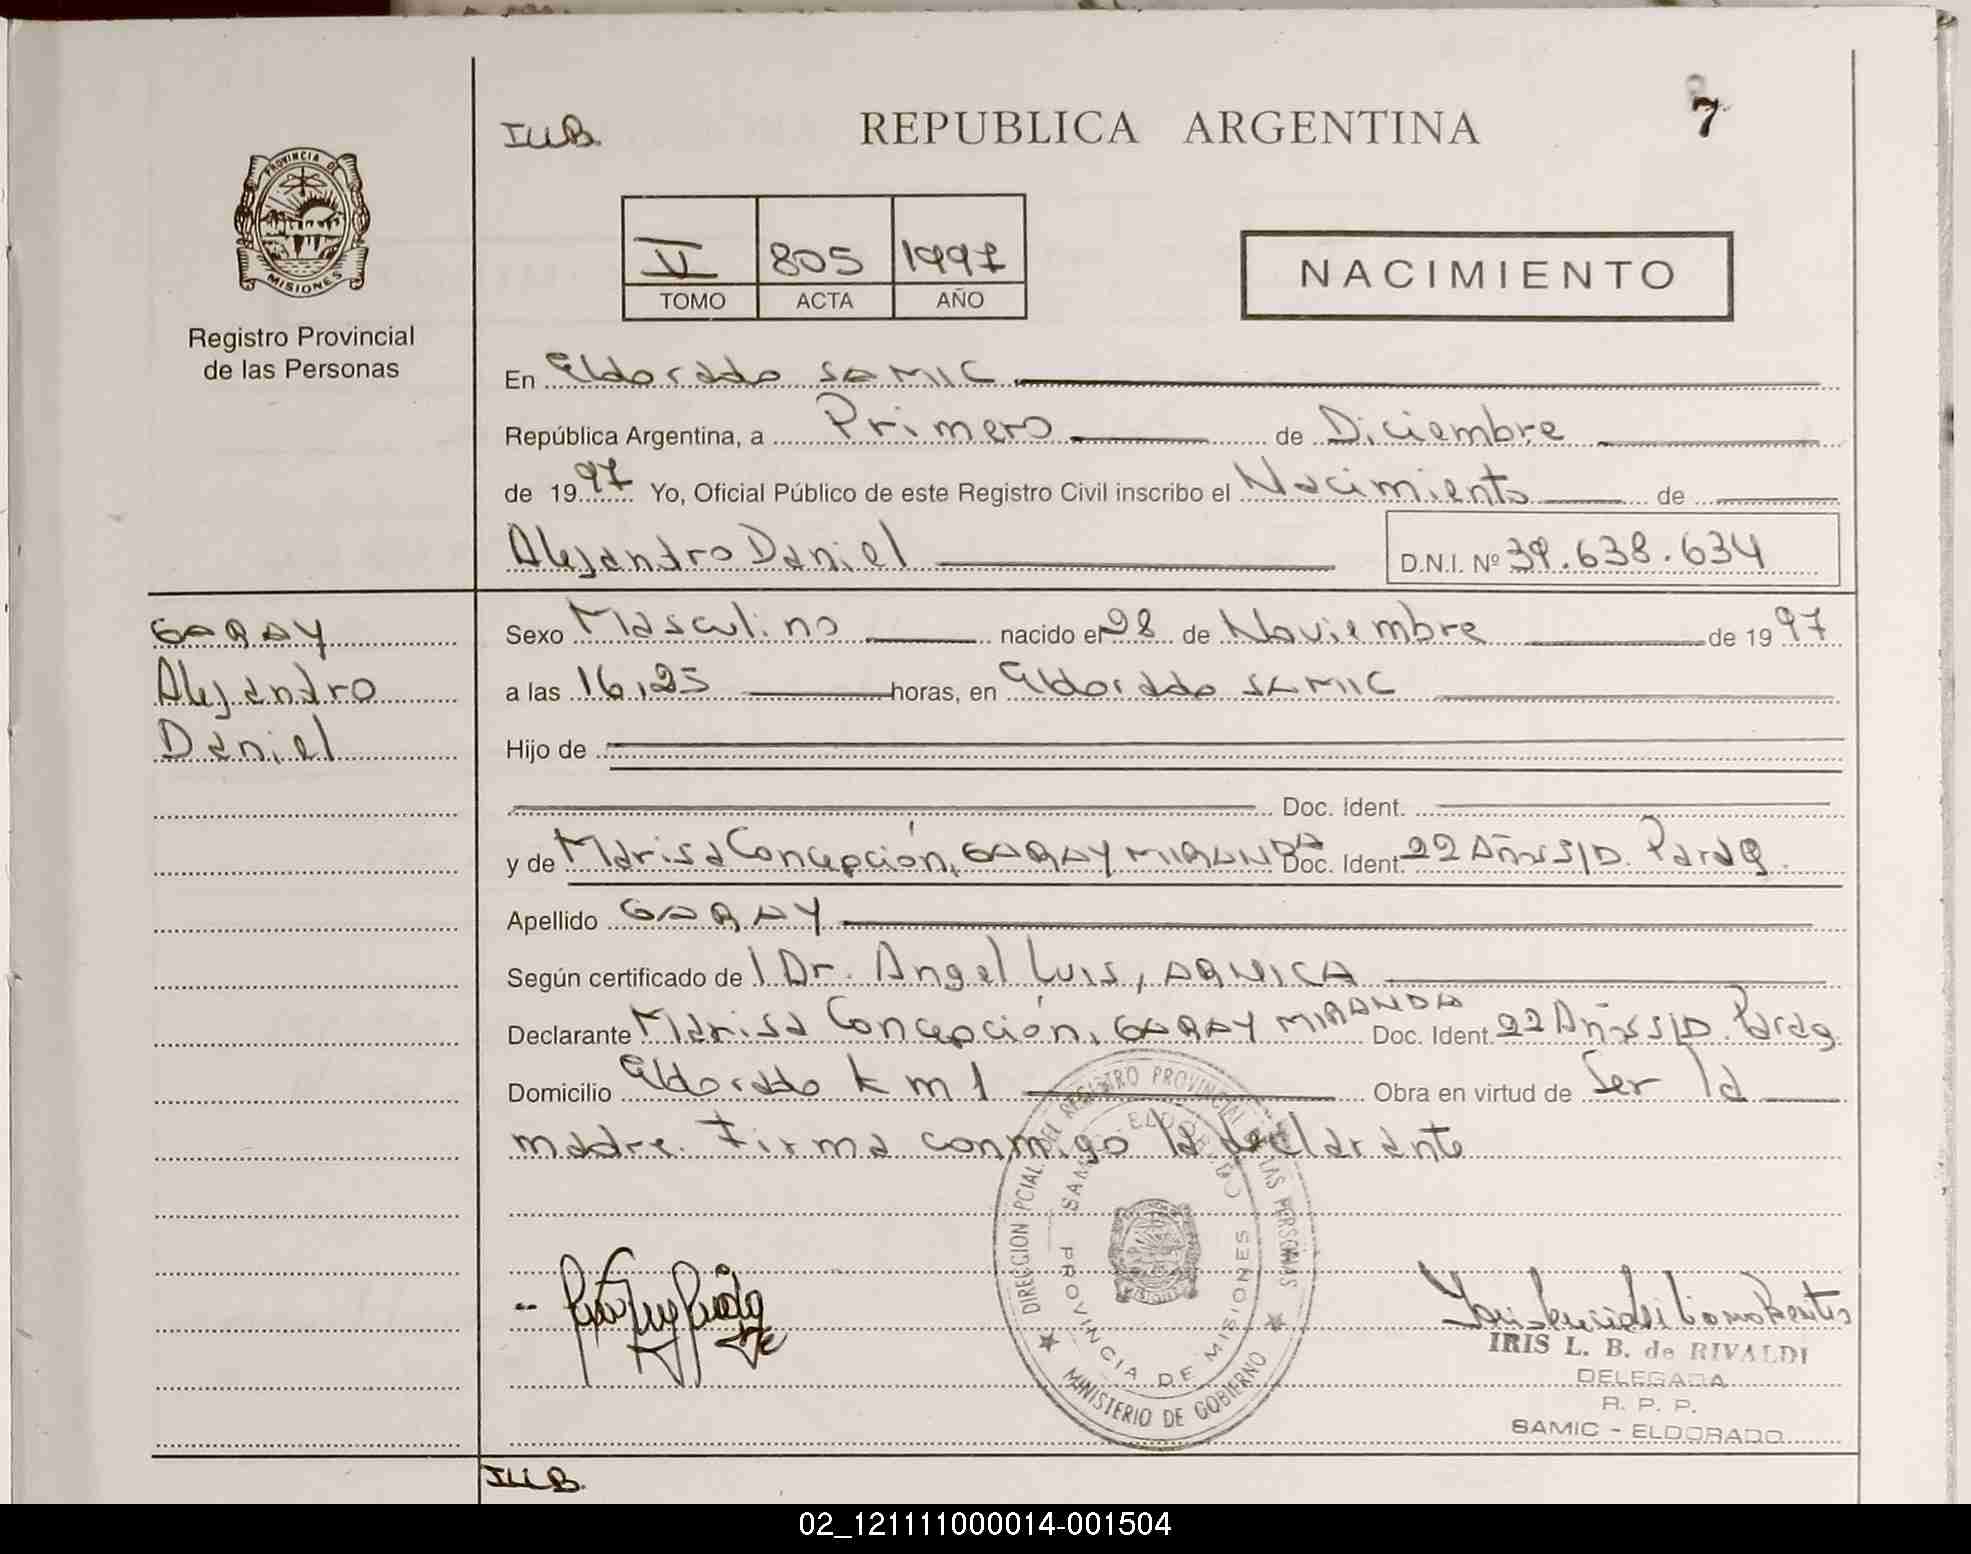 ILLB.
REPUBLICA ARGENTINA
7
PROVINCIA DE
MISIONES
Registro Provincial
de las Personas
V 805 1997
TOMO ACTA AÑO
NACIMIENTO
En Eldorado SAMIC
República Argentina, a Primero de Diciembre
de 1997 Yo, Oficial Público de este Registro Civil inscribo el Nacimiento de
Alejandro Daniel D.N.I. Nº 39.638.634
GARAY
Alejandro
Daniel
Sexo Masculino nacido el 28 de Noviembre de 1997
a las 16,25 horas, en Eldorado SAMIC
Hijo de
Doc. Ident.
y de Marisa Concepción, GARAY MIRANDA Doc. Ident. 22 Años S/D. Parag.
Apellido GARAY
Según certificado de l Dr. Angel Luis, ARNICA
Declarante Marisa Concepción, GARAY MIRANDA Doc. Ident. 22 Años S/D. Parag.
Domicilio Eldorado km 1 Obra en virtud de Ser la
madre. Firma conmigo la declarante
DIRECCION PCIAL. DEL REGISTRO PROVINCIAL DE LAS PERSONAS
SAMIC ELDORADO
PROVINCIA DE MISIONES
MINISTERIO DE GOBIERNO
IRIS L. B. de RIVALDI
DELEGADA
R. P. P.
SAMIC - ELDORADO
ILLB.
02_121111000014-001504